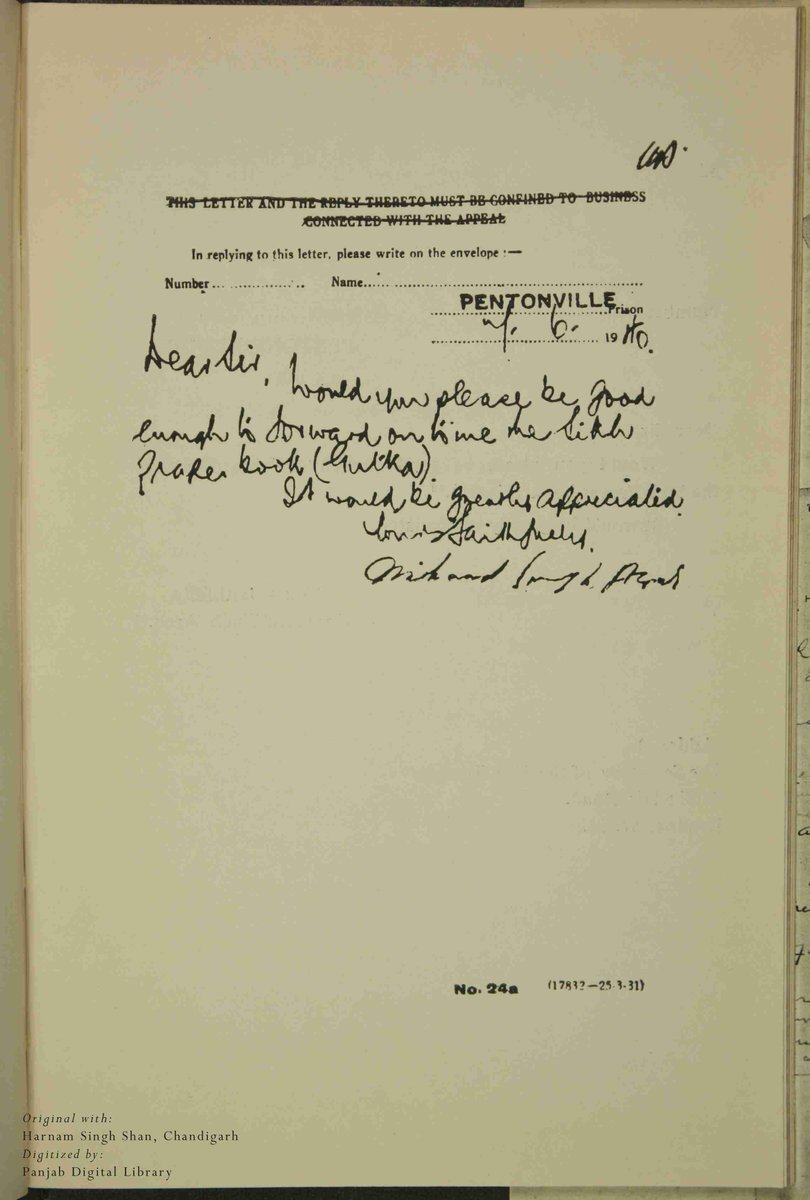 THIS LETTER AND THE REPLY THERETO MUST BE CONFINED TO BUSINESS
CONNECTED WITH THE APPEAL
In replying to this letter, please write on the envelope :—
Number... Name...
PENTONVILLE Prison
6. 1940.
Dear Sir,
Would you please be good
enough to forward on to me the Sikh
prayer book (Gutka).
It would be greatly appreciated.
Yours faithfully,
Singh Azad
No. 24a (17832—25-3-31)
Original with:
Harnam Singh Shan, Chandigarh
Digitized by:
Panjab Digital Library